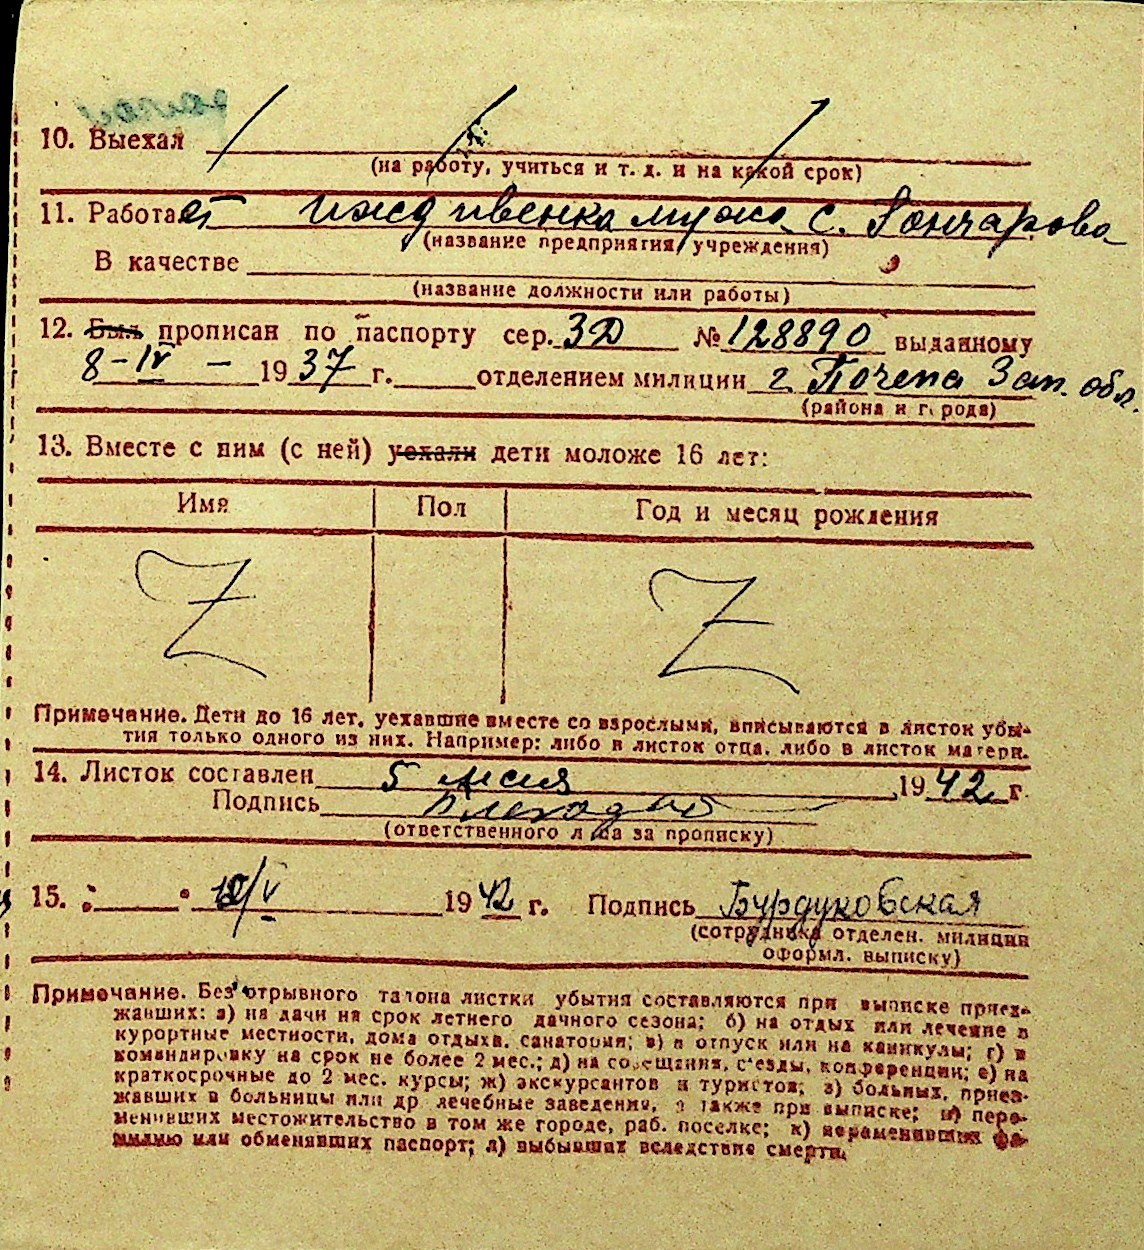 10. Выехал
(на работу, учиться и т. д. и на какой срок)
11. Работает иждивенка мужа с. Гончарова
(название предприятия учреждения)
В качестве
(название должности или работы)
12. Был прописан по паспорту сер. ЗД № 128890 выданному
8-IV - 1937 г. отделением милиции г. Почепа Зап. обл.
(района и города)
13. Вместе с ним (с ней) уехали дети моложе 16 лет:
Имя Пол Год и месяц рождения
Z Z
Примечание. Дети до 16 лет, уехавшие вместе со взрослыми, вписываются в листок убы-
тия только одного из них. Например: либо в листок отца, либо в листок матери.
14. Листок составлен 5 1942 г.
Подпись
(ответственного лица за прописку)
15. /V 1942 г. Подпись Бурдуковская
(сотрудника отделен. милиции
оформл. выписку)
Примечание. Без отрывного талона листки убытия составляются при выписке приез-
жавших: а) на дачи на срок летнего дачного сезона; б) на отдых или лечение в
курортные местности, дома отдыха, санатория; в) в отпуск или на каникулы; г) в
командировку на срок не более 2 мес.; д) на совещания, съезды, конференции; е) на
краткосрочные до 2 мес. курсы; ж) экскурсантов и туристов; з) больных, приез-
жавших в больницы или др лечебные заведения, а также при выписке; и) пере-
менивших местожительство в том же городе, раб. поселке; к) переменивших фа-
милию или обменявших паспорт; л) выбывших вследствие смерти.